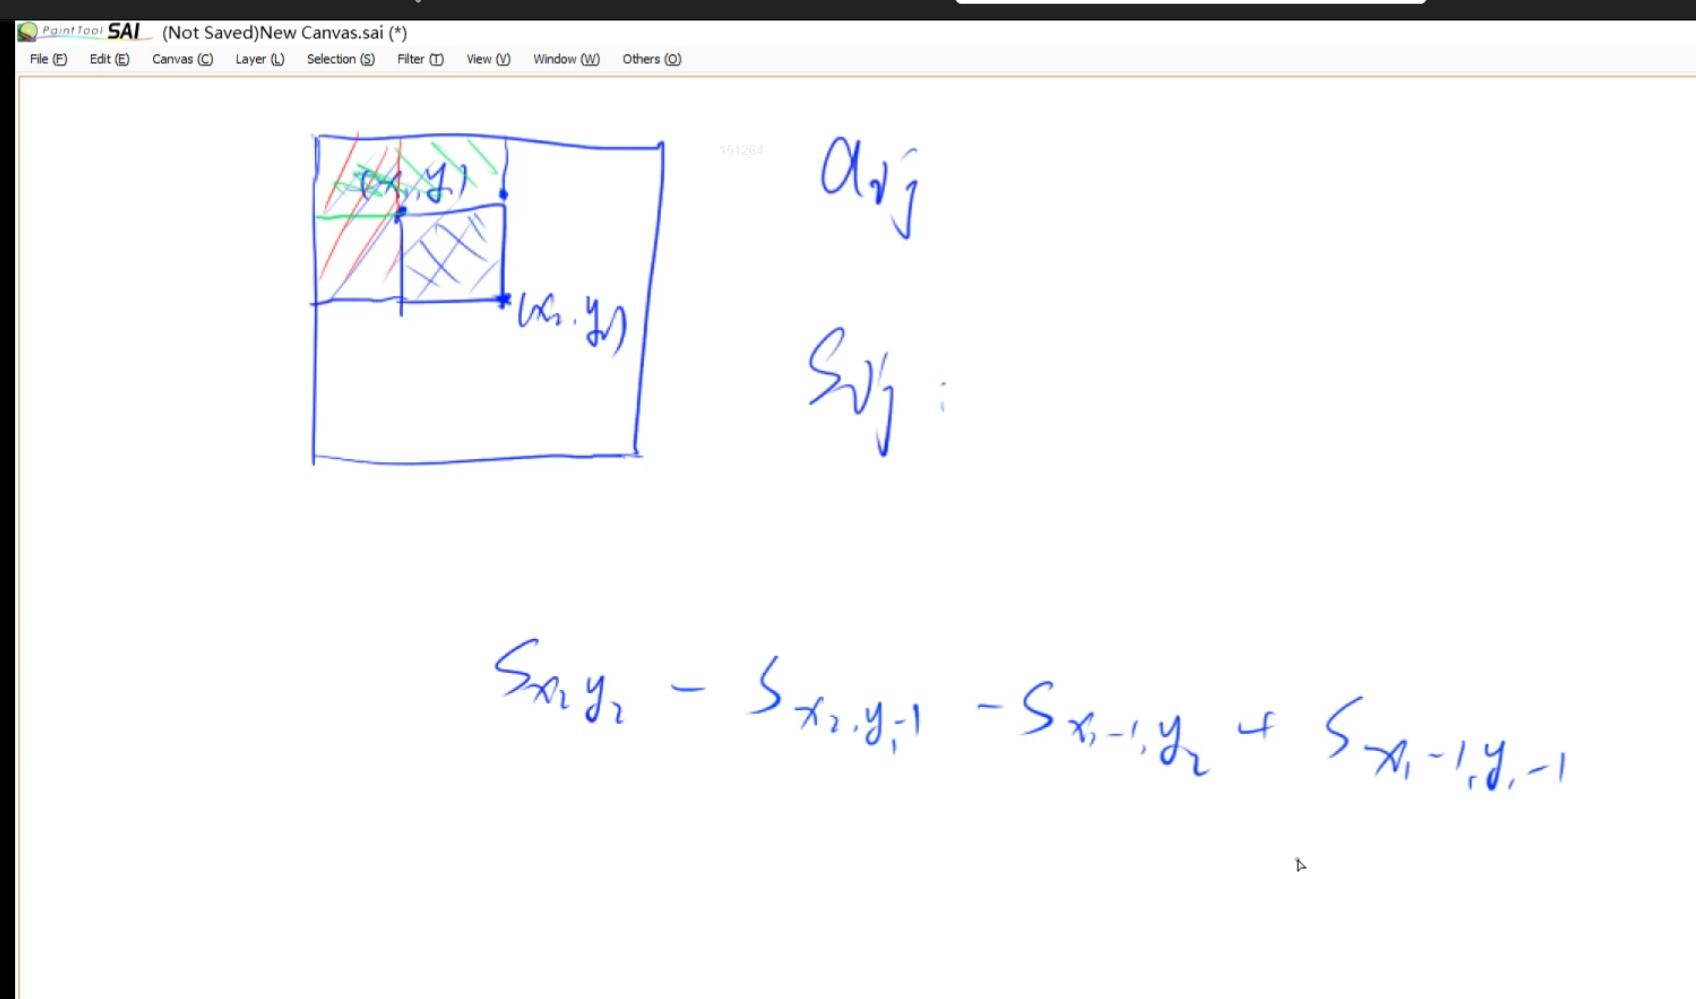 PaintTool SAI (Not Saved)New Canvas.sai (*)
File (F) Edit (E) Canvas (C) Layer (L) Selection (S) Filter (T) View (V) Window (W) Others (O)
151264
aij
(x1, y1)
(x2, y2)
Sij :
Sx2y2 - Sx2,y1-1 - Sx1-1,y2 + Sx1-1,y1-1